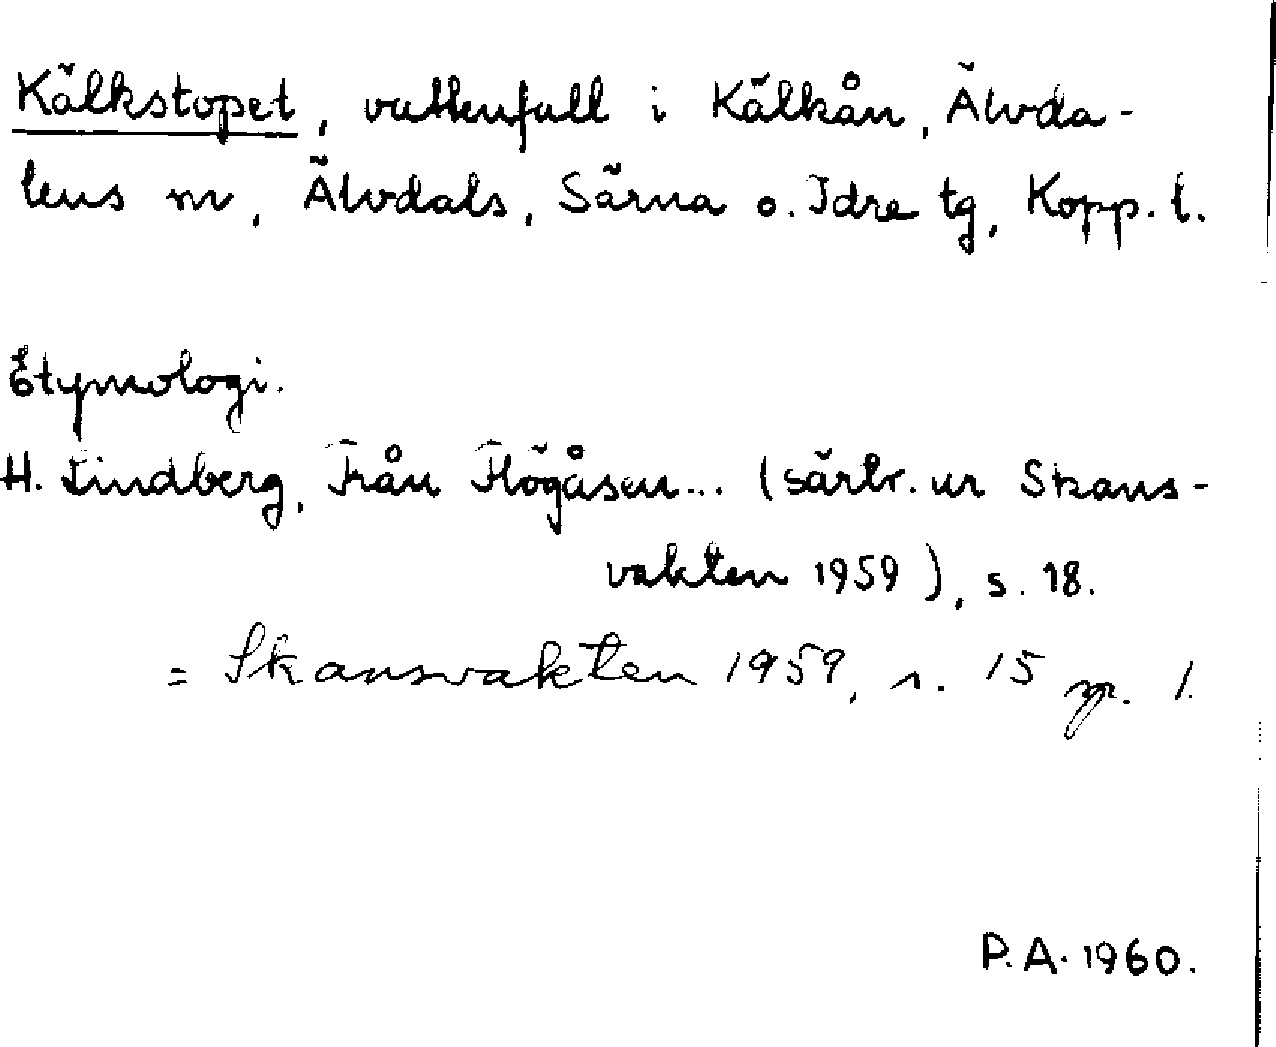 Kälkstupet, vattenfall i Kälkån, Älvda-
lens sn, Älvdals, Särna o. Idre tg, Kopp. l.
Etymologi.
H. Lindberg, Från Högåsen... (särtr. ur Skans-
vakten 1959), s. 18.
= Skansvakten 1959, s. 15 sp. 1.
P.A. 1960.